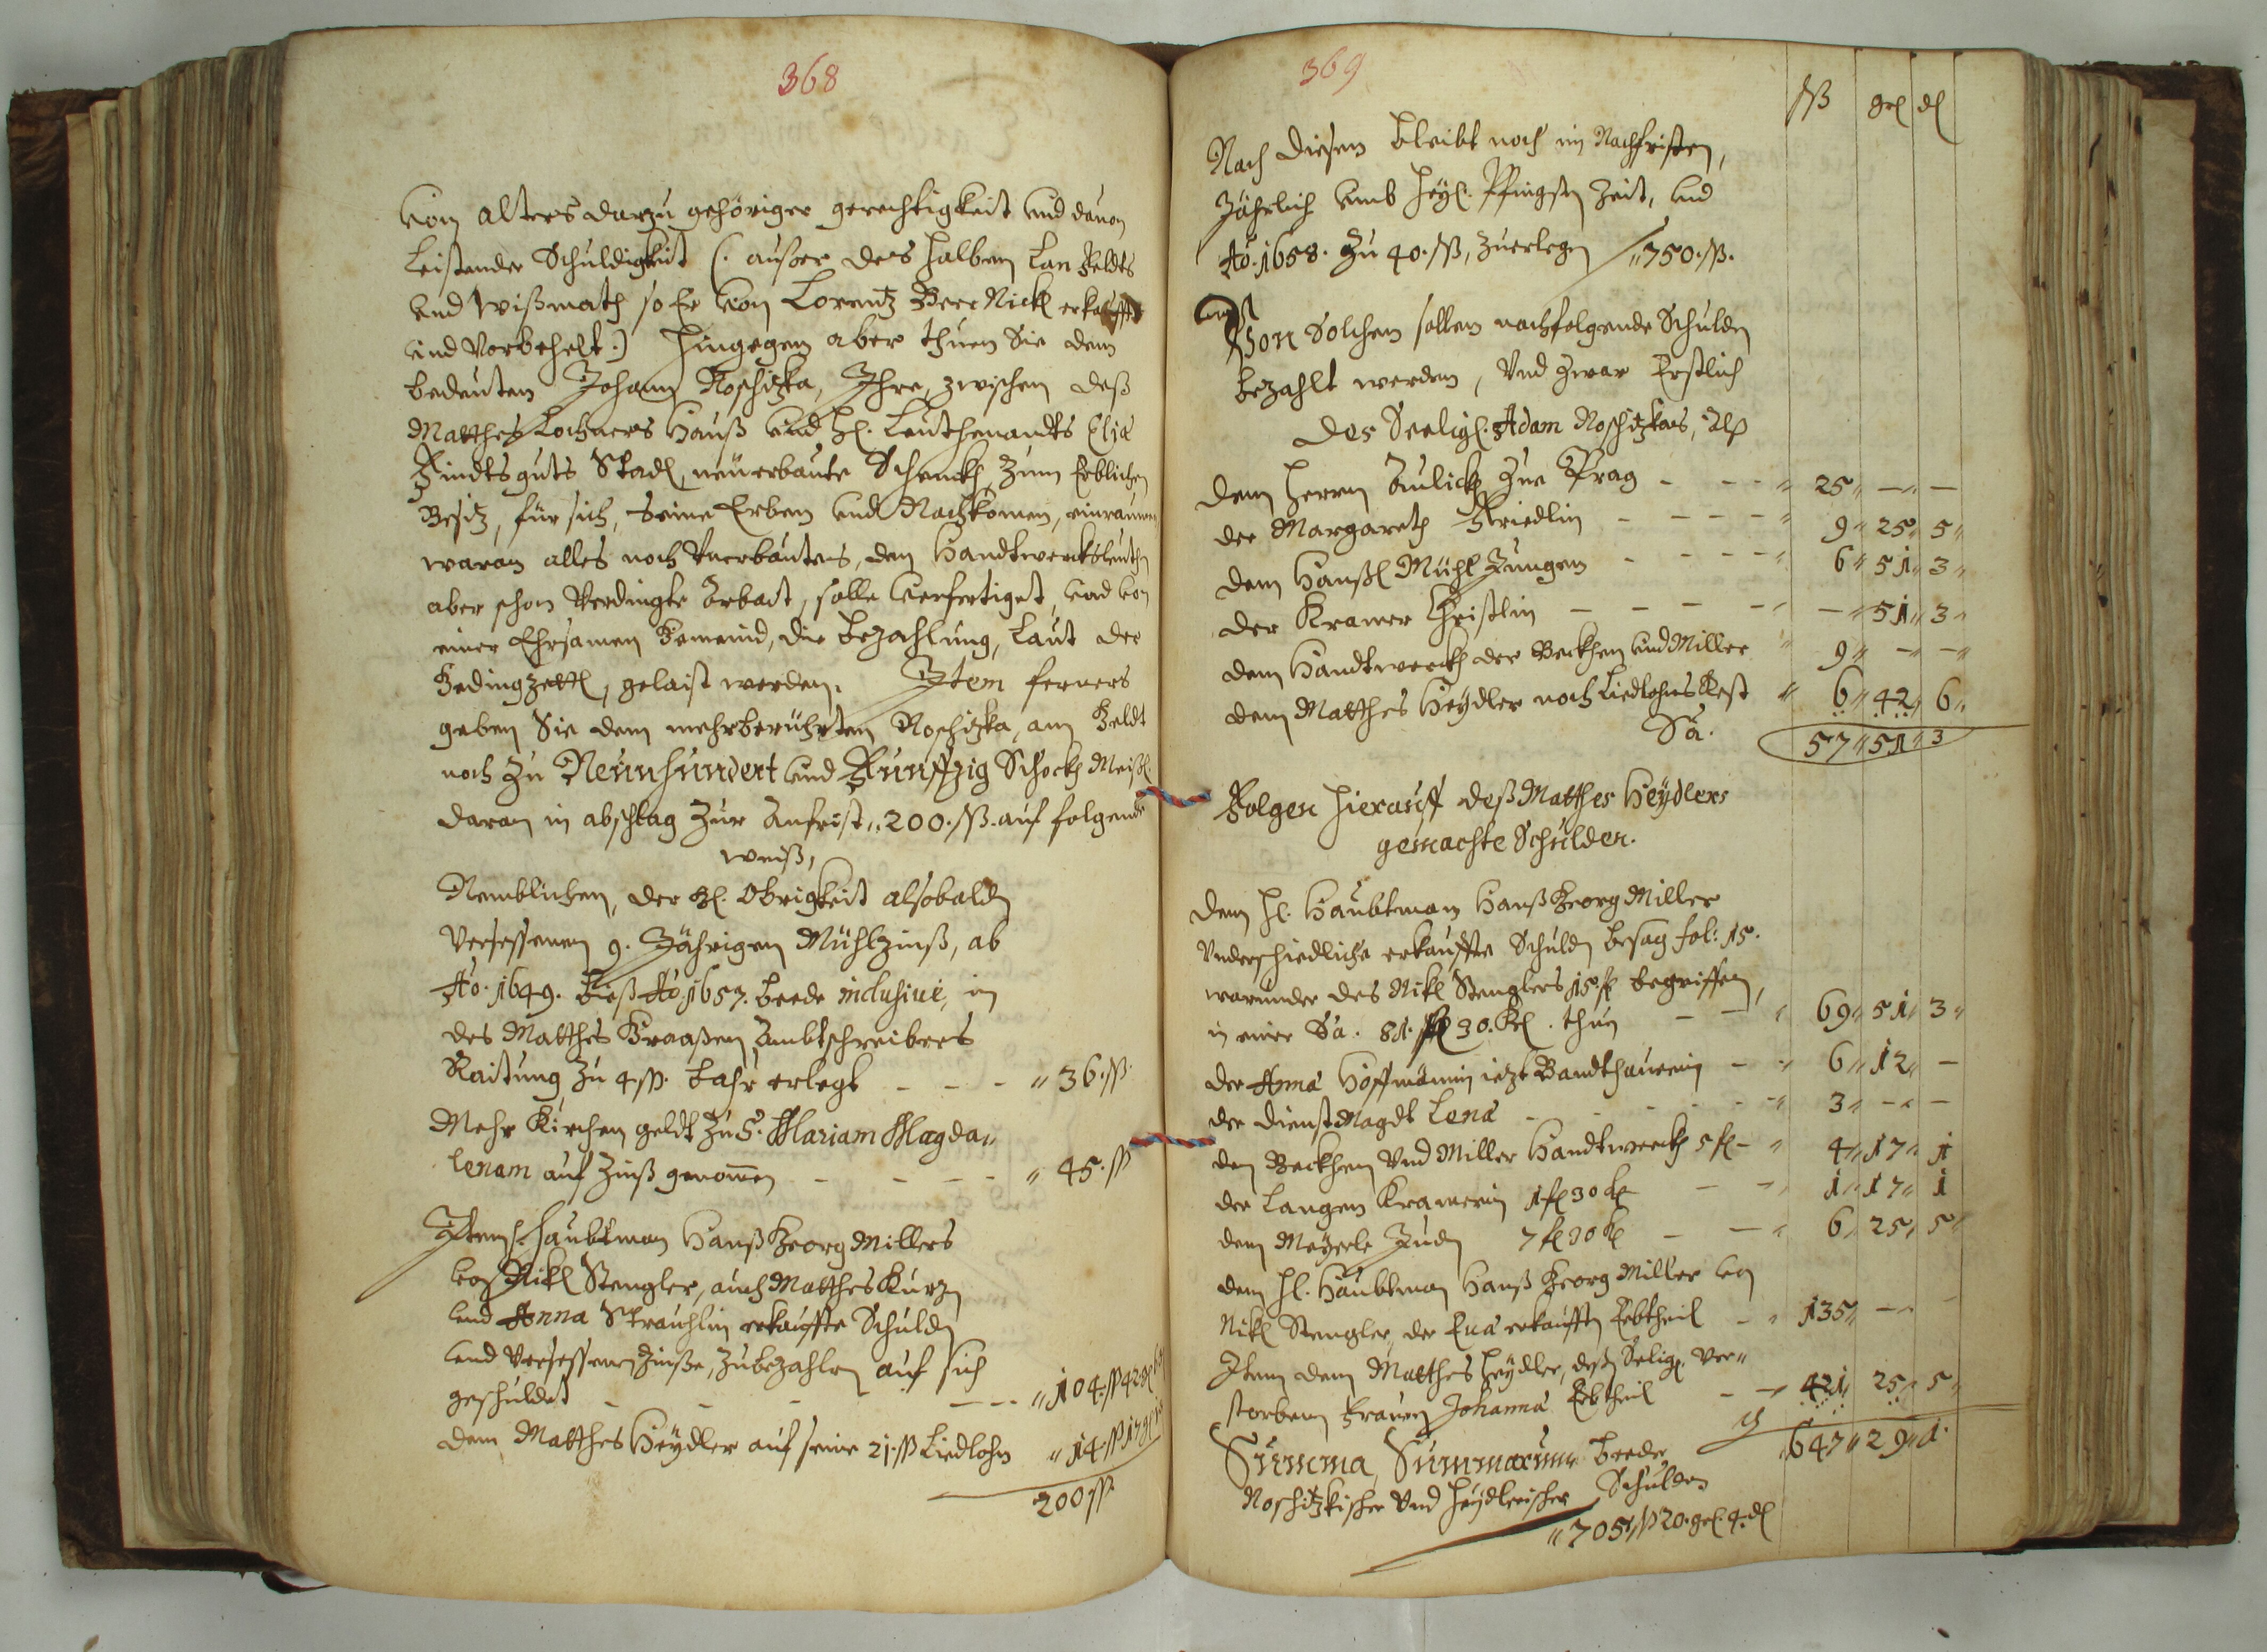 368
von alters darzu gehöriger gerechtigkeit und davon
Leistender Schuldigkeit (: außer des halben Lan Feldts
und Wißmath so Er von Lorentz Beer Nickl erkaufft
und Vorbehelt :) Hingegen aber thuen Sie dem
bedeuten Johann Roschitzka, Ihre, zwischen deß
Matthes Lochners Hauß und H. Leuthenandts Elia
guts Stadl, neuerbaute Schenckh, zum Erblichen
Besitz, für sich, seine Erben und Nachkomen, einraumen
waran alles noch Vnerbautes, den Handtwercksleuthn
aber schon Verdingte Arbait, solle verfertiget, und von
einer Ehrsamen Gemeind, die bezahlung, Laut der
Gedingzettl, gelaist werden. Item ferners
geben Sie dem mehrberührten Roschitzka, am Geldt
noch zu Neunhundert und Funffzig Schockh Meißl.
daran in abschlag zur Anfrist, 200. ßß. auf folgende
weiß,
Nemblichen, der H. Obrigkeit alsobaldn
Versessenen 9. Jährigen Mühlzinß, ab
Ao. 1649. bieß Ao. 1657. beede inclusivè, in
des Matthes Ambtschreibers
Raitung zu 4 ßß. bahr erlegt - - - " 36. ßß.
Mehr Kirchen geldt zu S. Mariam Magda,,
lenam auf Zinß genomen - - - - " 45. ßß
Item H. Haubtman Hanß Georg Millers
von Nikl Stengler, auch Matthes Kurzn
und Anna Strauhlin erkauffte Schuldn
und Versessenen Zinße, zubezahlen auf sich
geschuldet - - - - - " 104. ßß 42 gl
dem Matthes Heÿdler auf seine 21. ßß Liedlohn " 14. ßß 17 gl
200 ßß.
369
ßß grl dl
Nach diesem bleibt noch im Nachfristen,
Jährlich umb Heÿl. Pfingstn Zeit, und
Ao. 1658. zu 40. ßß, zuerlegn " 750. ßß.
Von Solchem sollen nachfolgende Schuldn
bezahlt werden, Vnd zwar Erstlich
des Seelig. Adam Roschitzkas, Alß
dem Herrn Zur Prag - - - " 25 " - " -
der Margareth Friedlin - - - - " 9 " 25 " 5 "
dem Hanßl Mühl Jungen - - - - " 6 " 51 " 3 "
der Kramer Christlin - - - - " - " 51 " 3 "
dem Handtwerckh der Beckhen und Miller " 9 " - " - "
dem Matthes Heÿdler noch Liedlohns Rest " 6 " 42 " 6 "
Sa. 57 " 51 " 3
Folgen hierauff deß Matthes Heÿdlers
gemachte Schulden.
dem H. Haubtman Hanß Georg Miller
Vnderschiedliche erkauffte Schuldn besag fol: 15.
warunder des Nikl Stenglers 15. fl begriffen,
in einer Sa. 81. fl 30. Kr. thun - - " 69 " 51 " 3 "
der Anna Hoffmänin ietzt Bandthauerin - " 6 " 12 " -
der dienst Magdt Lena - - - - " 3 " - " -
den Beckhen Vnd Miller Handtwerckh 5 fl - " 4 " 17 " 1
der Langen Kramerin 1 fl 30 Kr - - " 1 " 17 " 1
dem Maÿerle Judn 7 fl 30 Kr - - " 6 " 25 " 5 "
dem H. Haubtman Hanß Georg Miller von
Nikl Stengler, der Eua erkaufftn Erbtheil - " 135 " - " -
Item dem Matthes Heÿdler, deßn Selig. Ver,,
storbenen Frauen Johanna Erbtheil - - " 421 " 25 " 5 "
647 " 29 " 1.
Summa Summarum beeder
Roschitzkischer Vnd Heÿdlerischer Schulden
" 705 ßß 20. grl. 4. dl